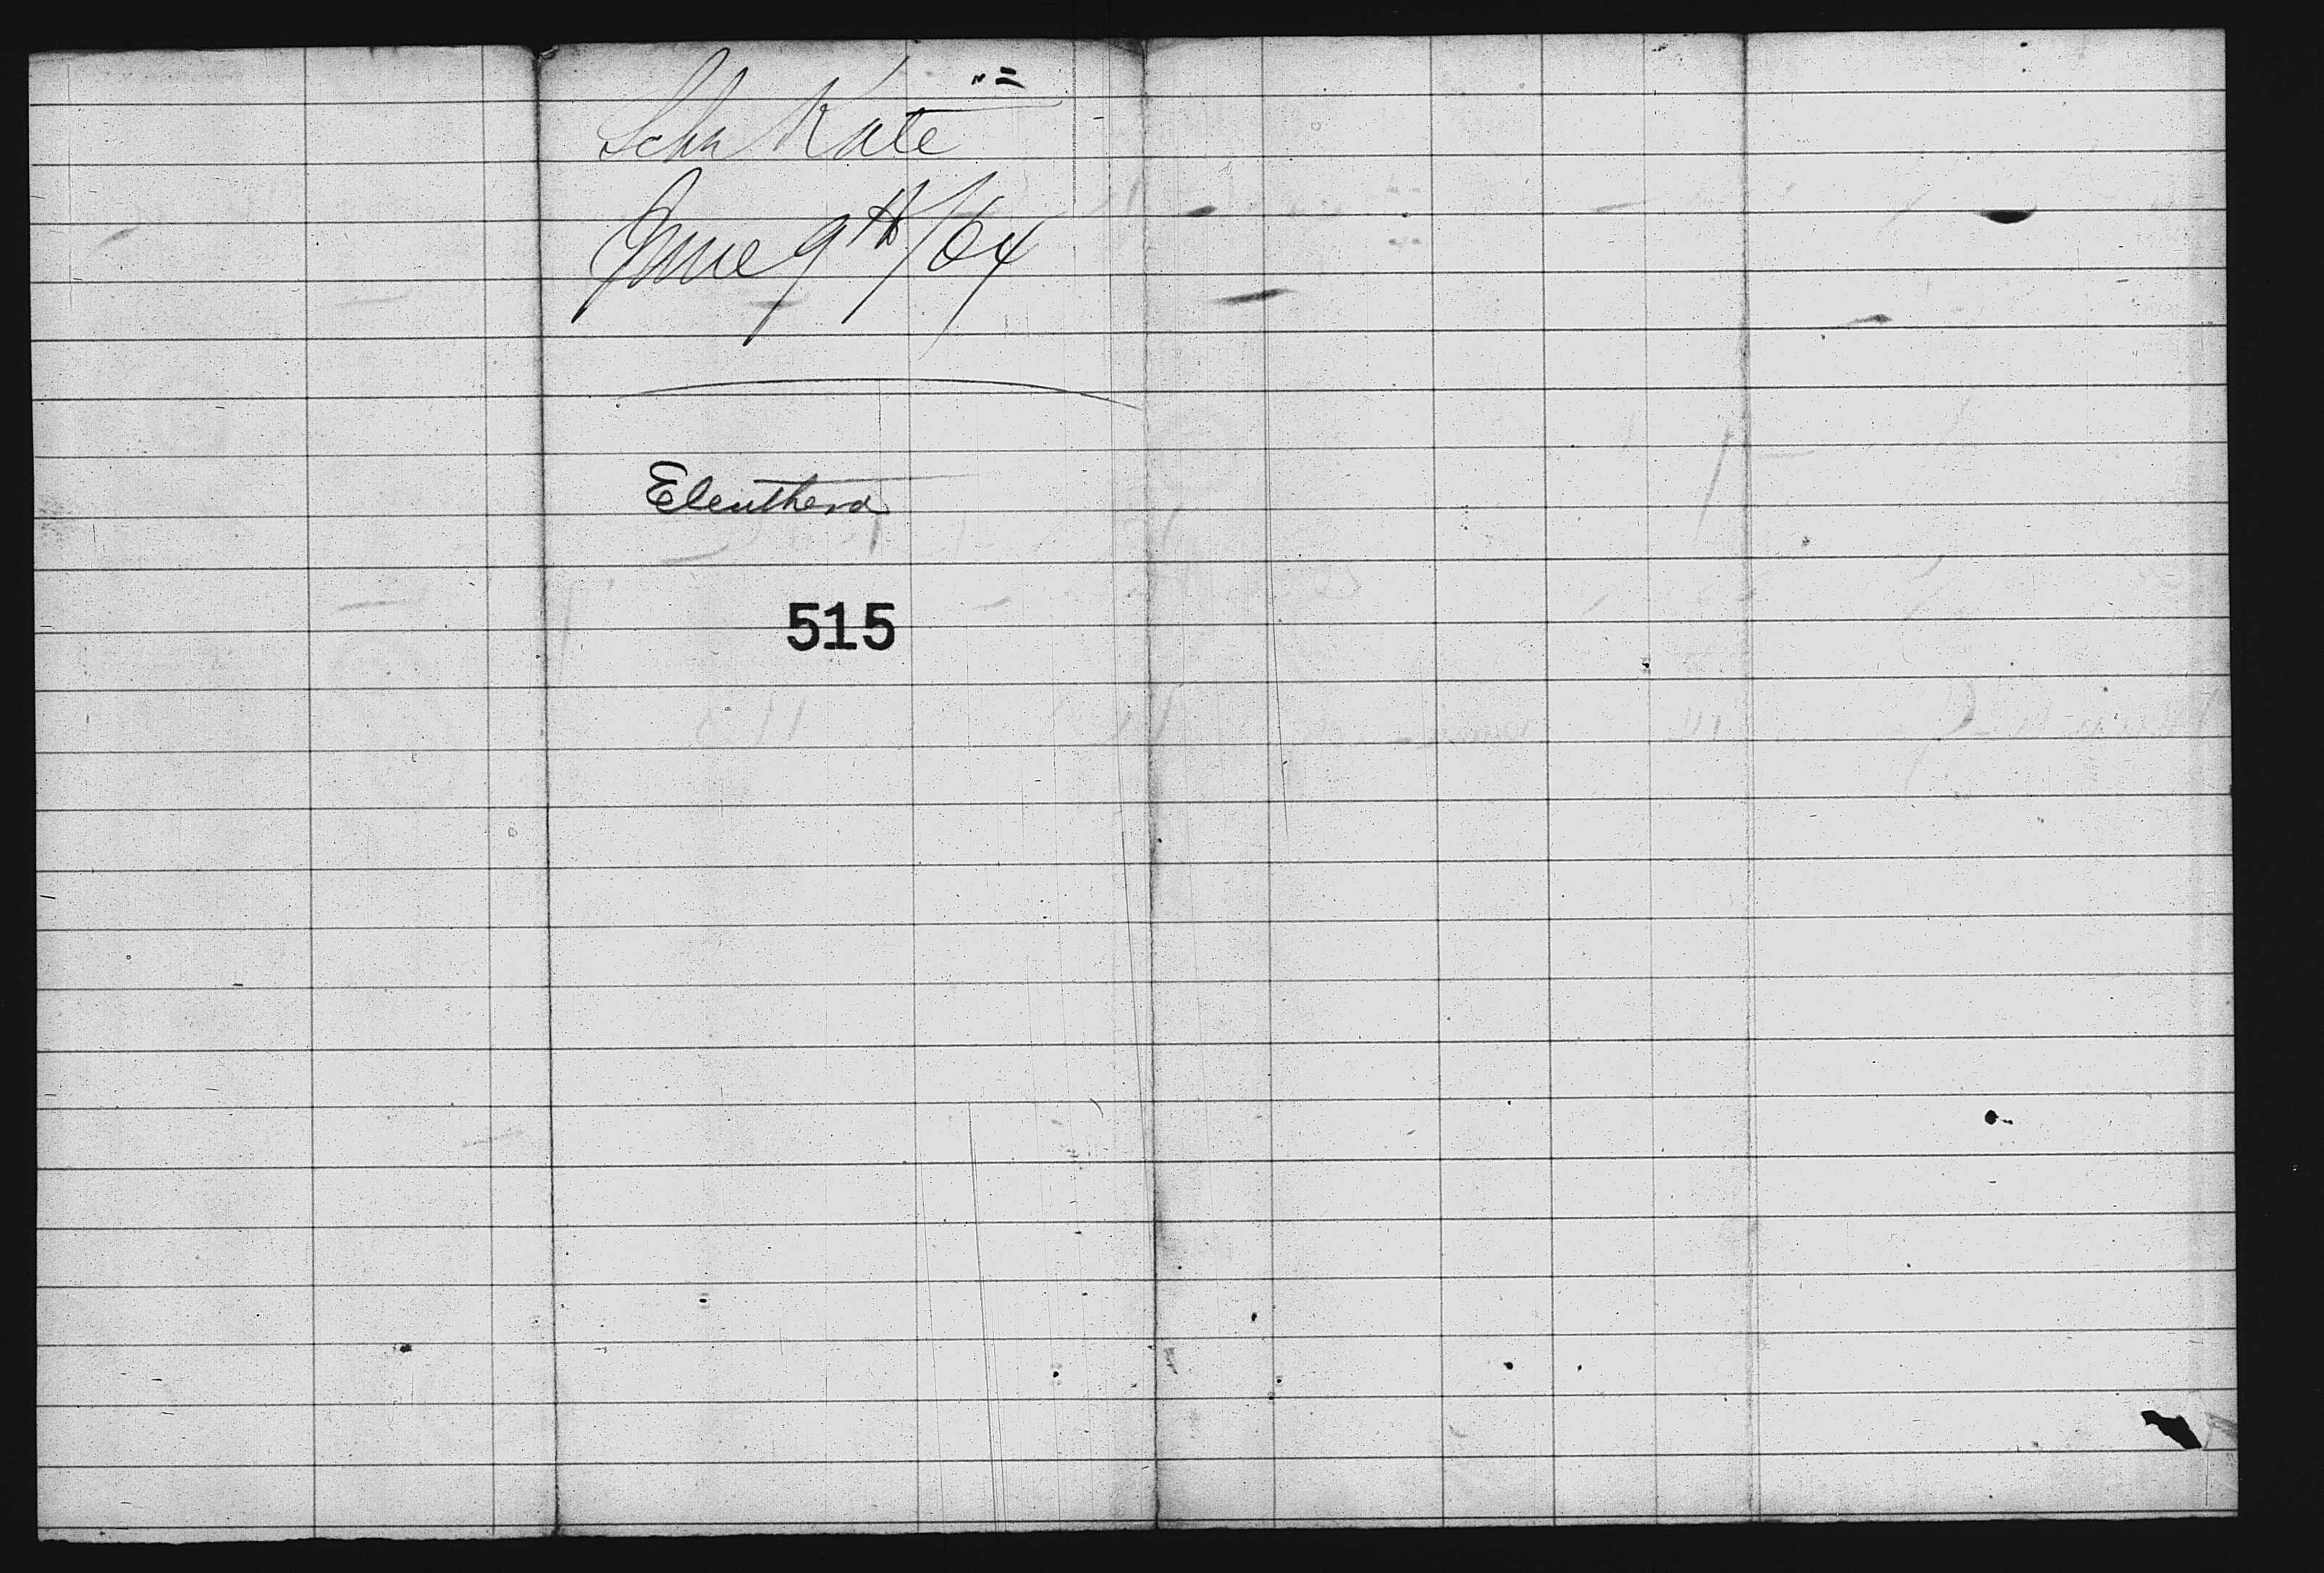 Schr Kate
June 9th/64
Eleuthera
515